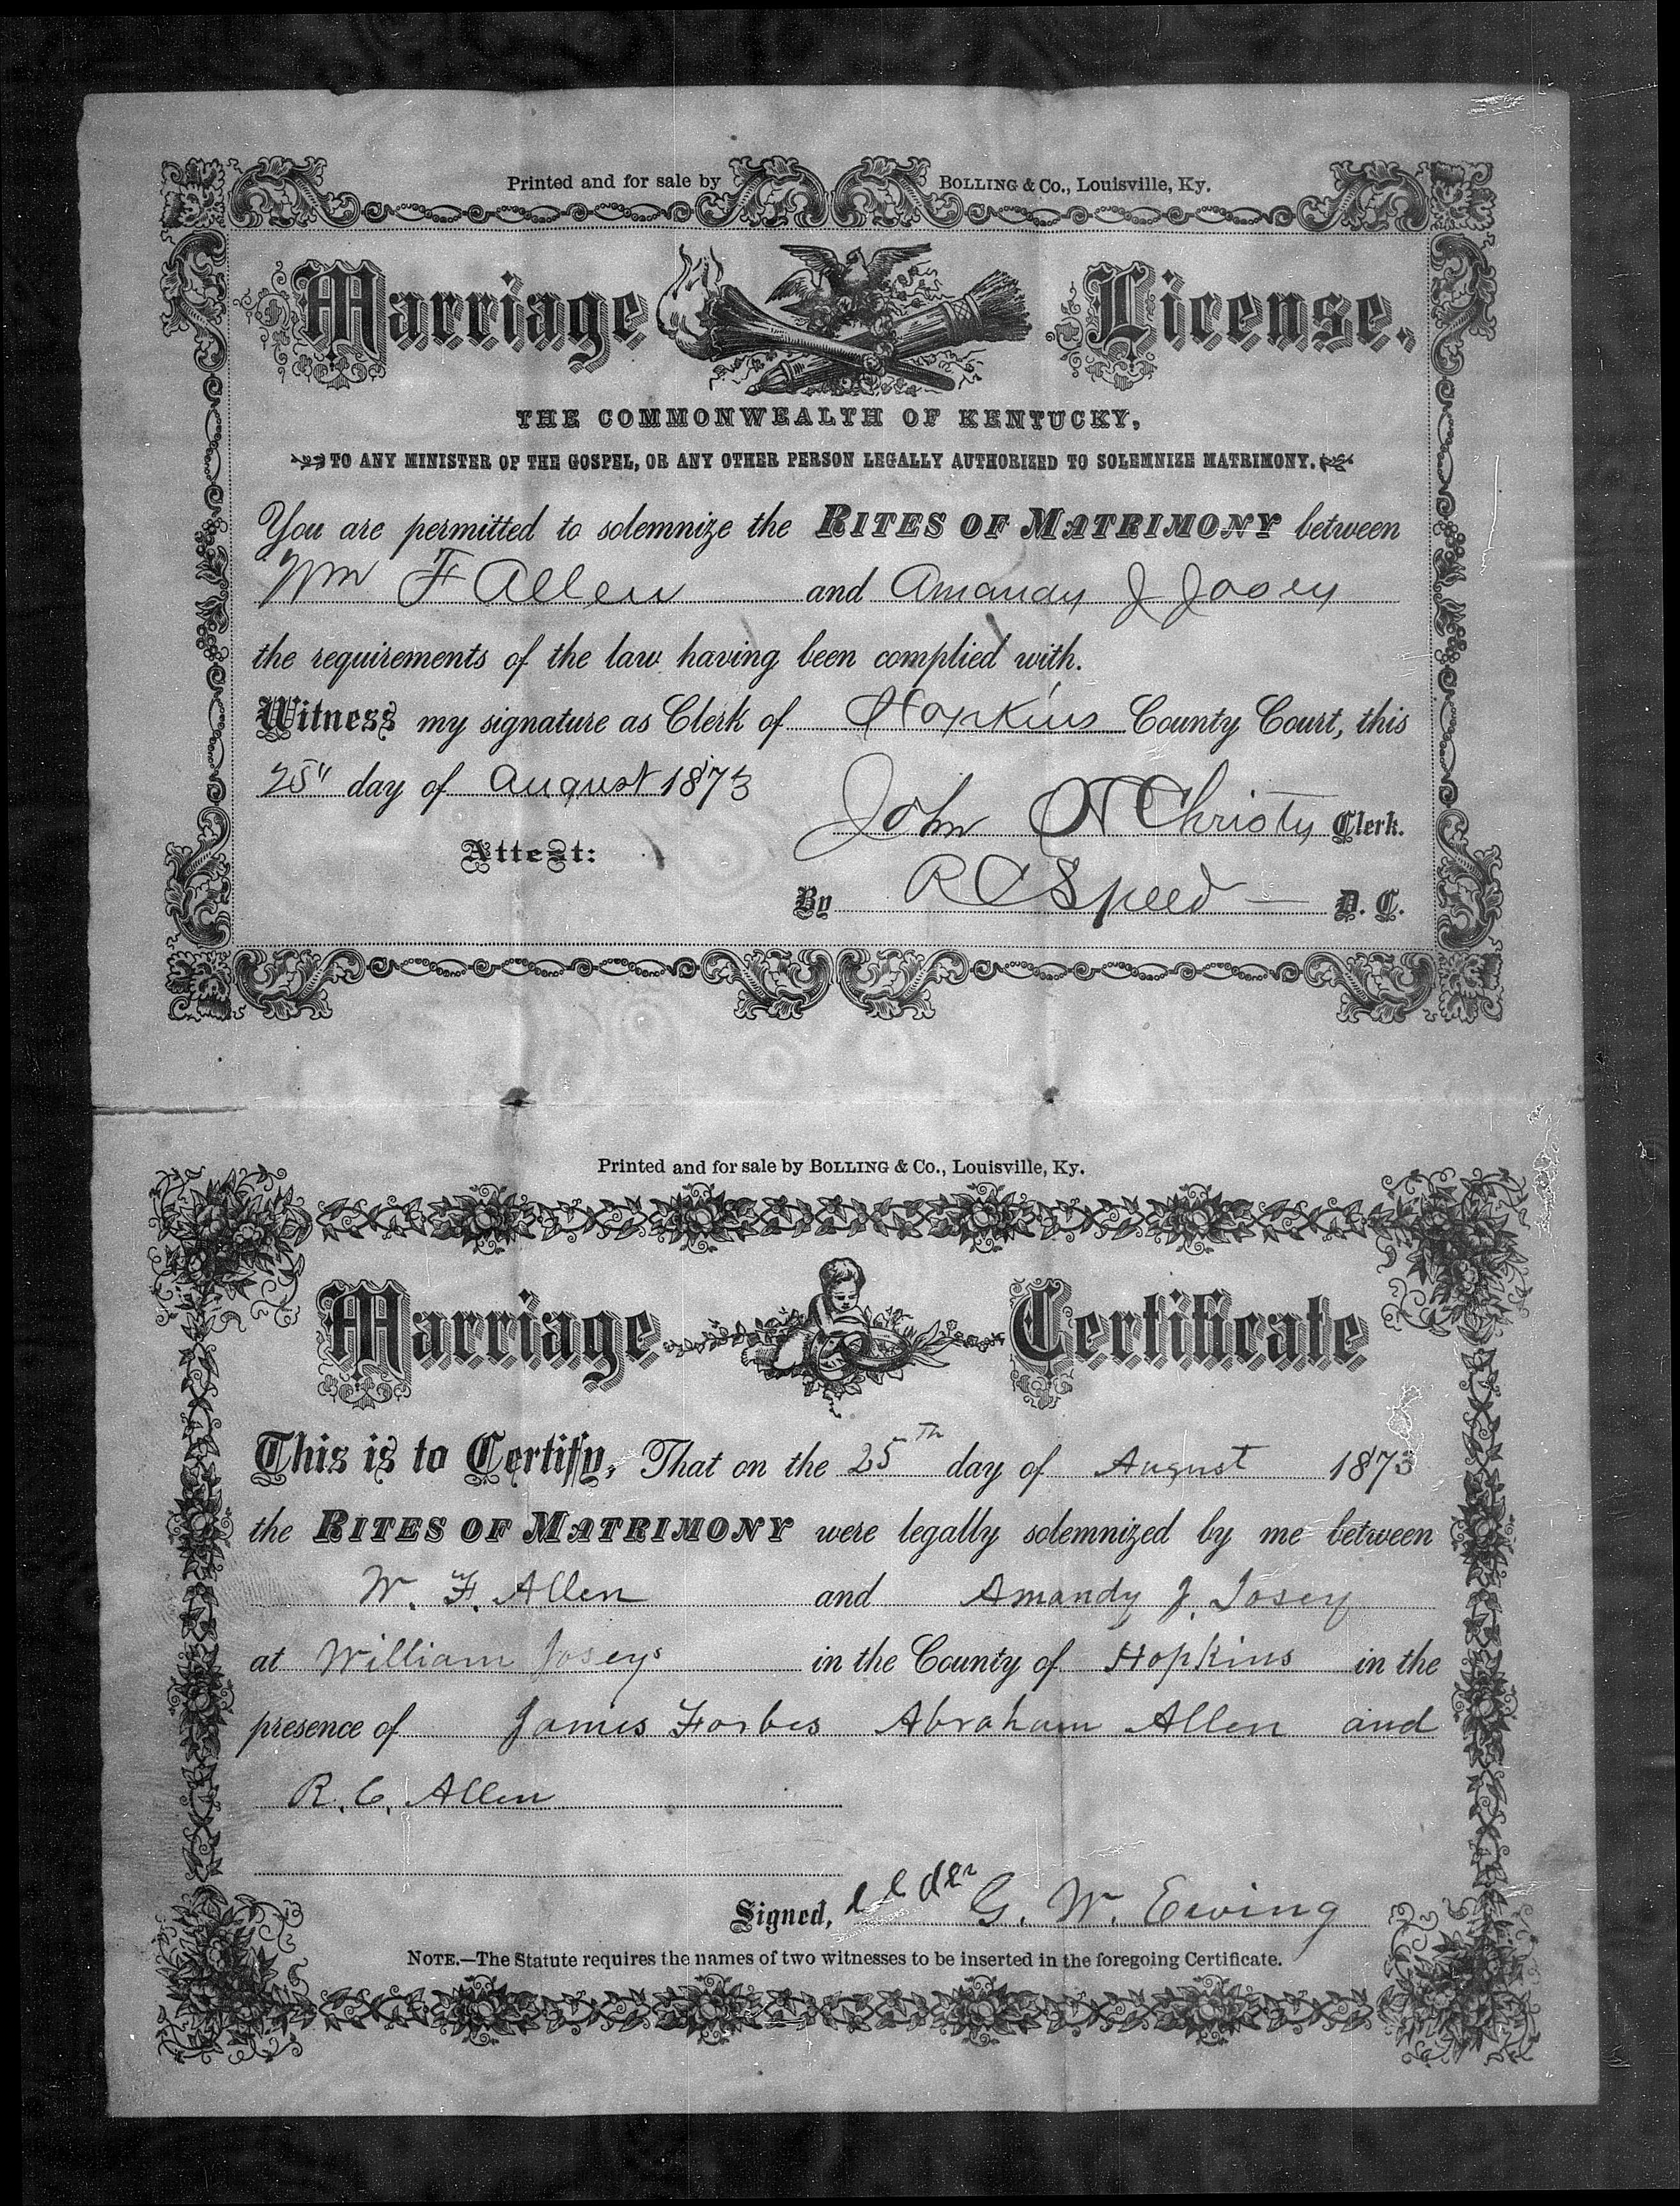 Printed and for sale by BOLLING & Co., Louisville, Ky.
Marriage License.
THE COMMONWEALTH OF KENTUCKY,
TO ANY MINISTER OF THE GOSPEL, OR ANY OTHER PERSON LEGALLY AUTHORIZED TO SOLEMNIZE MATRIMONY.
You are permitted to solemnize the RITES OF MATRIMONY between
Wm F Allen and Amanday J Josey
the requirements of the law having been complied with.
Witness my signature as Clerk of Hopkins County Court, this
25" day of August 1873
John N Christy Clerk.
Attest:
By R C Speed D. C.
Printed and for sale by BOLLING & Co., Louisville, Ky.
Marriage Certificate
This is to Certify, That on the 25th day of August 1873
the RITES OF MATRIMONY were legally solemnized by me between
W. F. Allen and Amandy J. Josey
at William Joseys in the County of Hopkins in the
presence of James Forbes Abraham Allen and
R. C. Allen
Signed, Elder G. W. Ewing
NOTE.—The Statute requires the names of two witnesses to be inserted in the foregoing Certificate.